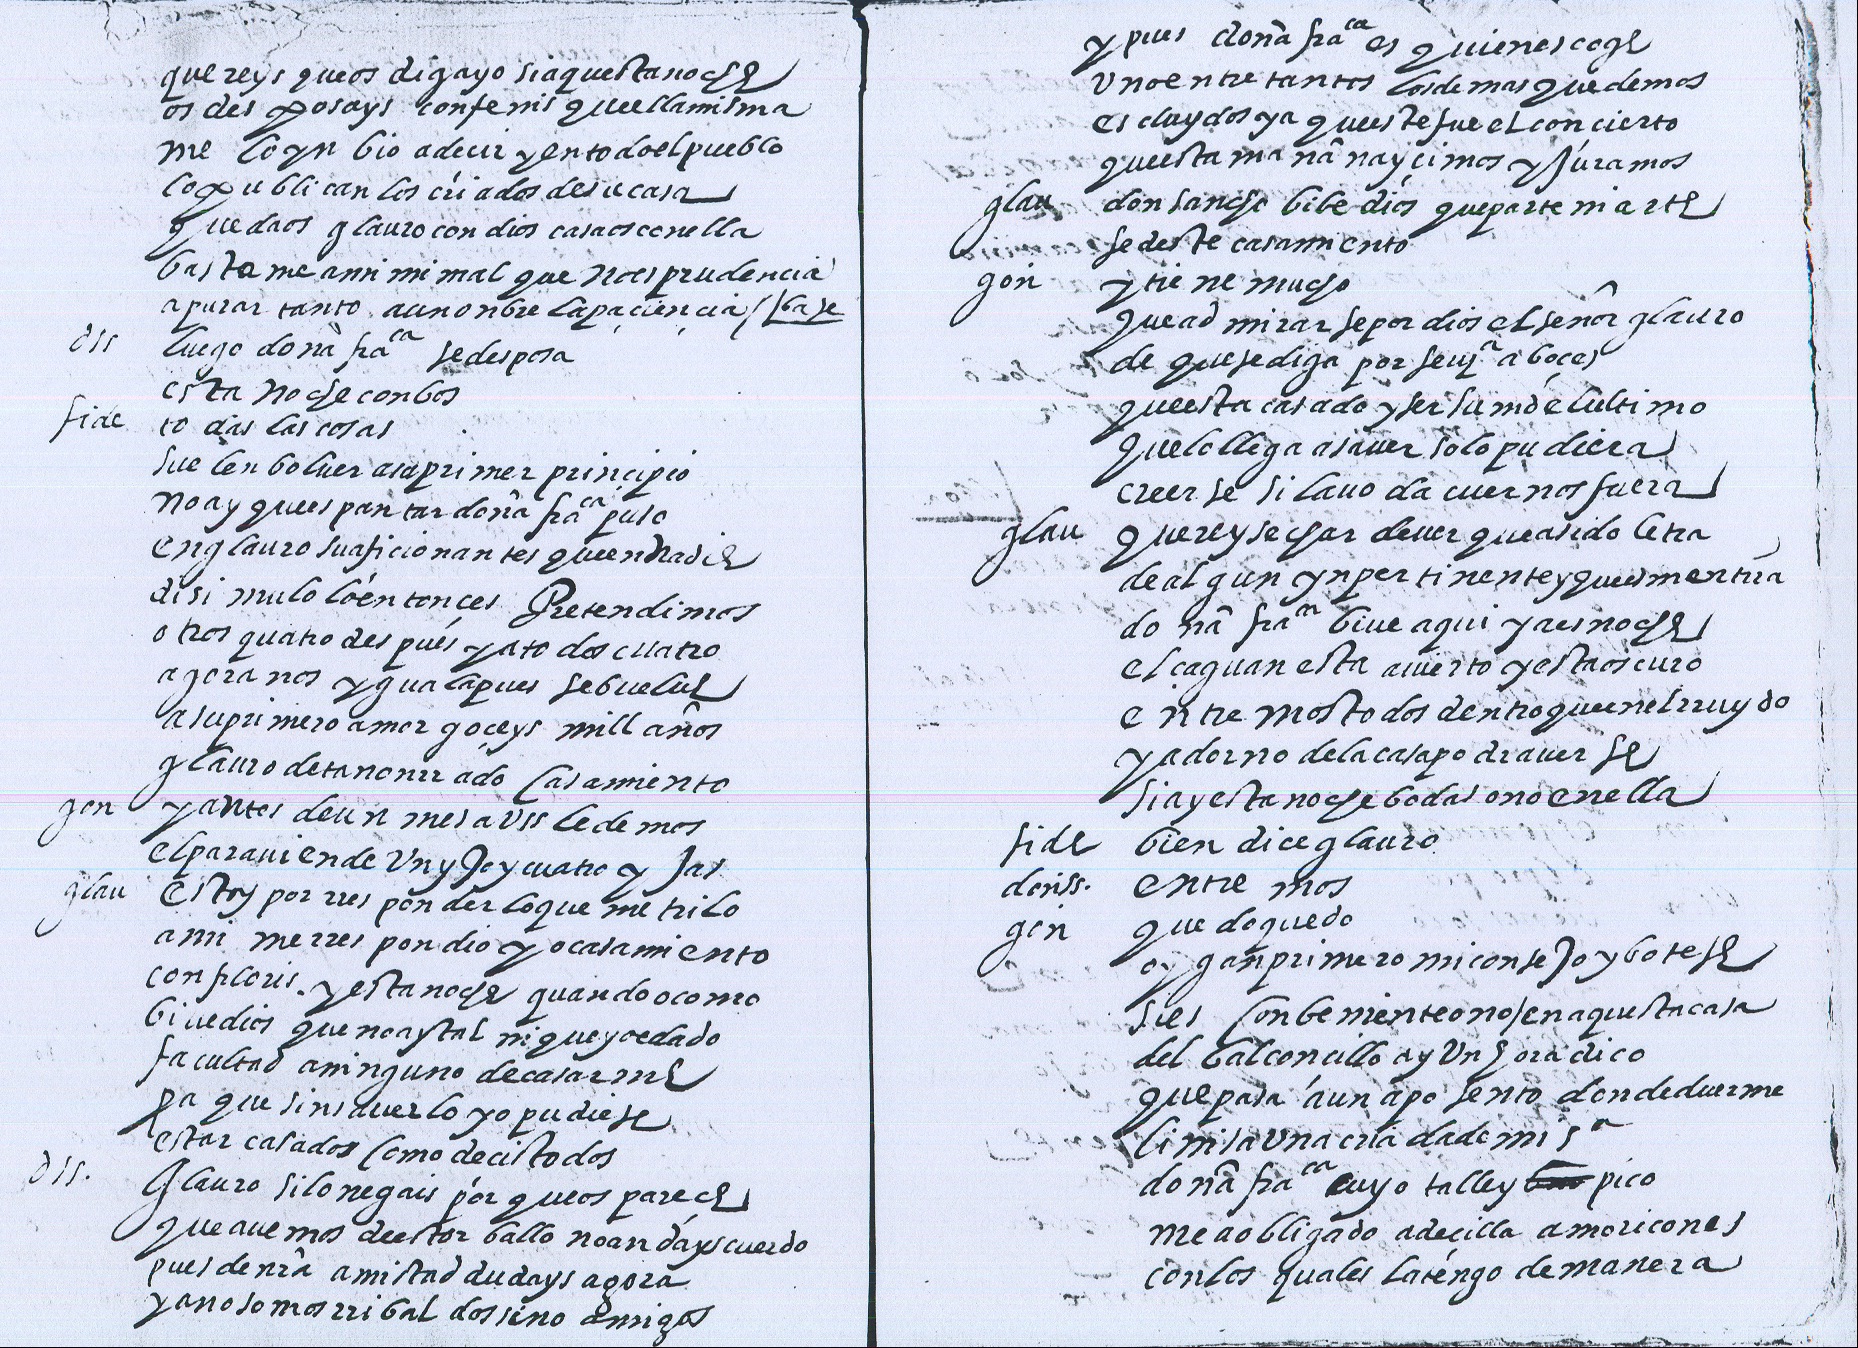 quereys que os diga yo si aquesta noche
os desposays con fenis que ella misma
me lo ynbio a decir y en todo el pueblo
lo publican los criados de su casa
quedaos glauro con dios casaos con ella
bastame a mi mi mal que no es prudencia
apurar tanto a un onbre la paciencia / base
luego doña fra^ca se desposa
esta noche con bos
fide todas las cosas
suelen bolver a su primer principio
no ay que espantar doña fra^ca puso
en glauro su aficion antes que en nadie
disimulolo entonces Pretendimos
otros quatro despues y a todos cuatro
agora nos yguala pues se buelue
a su primero amor goceys mill años
glauro de tan onrrado casamiento
gon y antes de un mes a vss le demos
el paravien de un yjo y cuatro yjas
glau estoy por rresponder lo que me
a mi me rrespondio yo casamiento
con floris. y esta noche quando o como
bive dios que no ay tal ni que yo e dado
facultad a ninguno de casarme
pa que sin saverlo yo pudiese
estar casados como decis todos
Glauro si lo negais por que os parece
que avemos de estorballo no andays cuerdo
pues de nra amistad dudays agora
ya no somos rribal dos sino amigos
y pues doña fra^ca es quien escoge
uno entre tantos los demas quedemos
escluydos ya que este fue el concierto
que esta mañana ycimos y juramos
glau don sancho bibe dios que parte ni arte
se de este casamiento
gon y tiene mucho
que admirarse por dios el señor glauro
de que se diga por seui^a a boces
que esta casado y ser su md el ultimo
que lo llega a saver solo pudiera
creerse si la uoda cuernos fuera
glau quereys echar de ver que a sido letra
de algun ynpertinente y que es mentira
doña fra^ca bive aqui ya es noche
el çaguan esta avierto y esta oscuro
entremos todos dentro que en el rruydo
y adorno de la casa podra verse
si ay esta noche bodas o no en ella
fide bien dice glauro
doriss. entremos
gon quedo quedo
oygan primero mi consejo y botese
si es conbeniente o no / en aquesta casa
del balconcillo ay un
que pasa a un aposento donde duerme
limisa una criada de mi s^a
doña fra^ca cuyo talle y pico
me a obligado a decilla amoricones
con los quales la tengo de manera